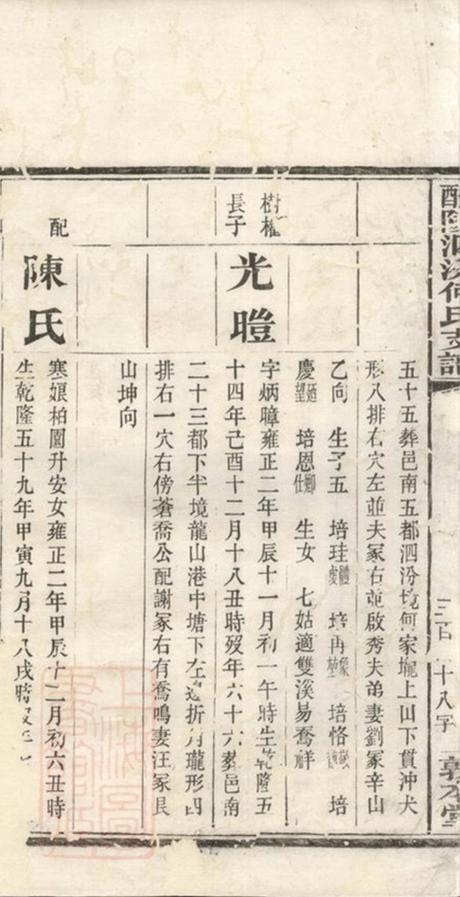 醴陵泗汾何氏支譜
三百 十八字 敦本堂
五十五葬邑南五都泗汾境何家壠上山下貫沖犬
形八排右穴左並夫冢右並啟秀夫弟妻劉冢辛山
乙向 生子五 培珪 培再 培恪 培
慶 培恩 生女 七姑適雙溪易喬祥
樹權
長子
光瞪
字炳暲雍正二年甲辰十一月初一午時生乾隆五
十四年己酉十二月十八丑時歿年六十六葬邑南
二十三都下半境龍山港中塘下左邊折月壠形四
排右一穴右傍蒼喬公配謝冢右有喬鳴妻汪冢艮
山坤向
配
陳氏
寒娘柏園升安女雍正二年甲辰十二月初六丑時
生乾隆五十九年甲寅九月十八戌時歿年